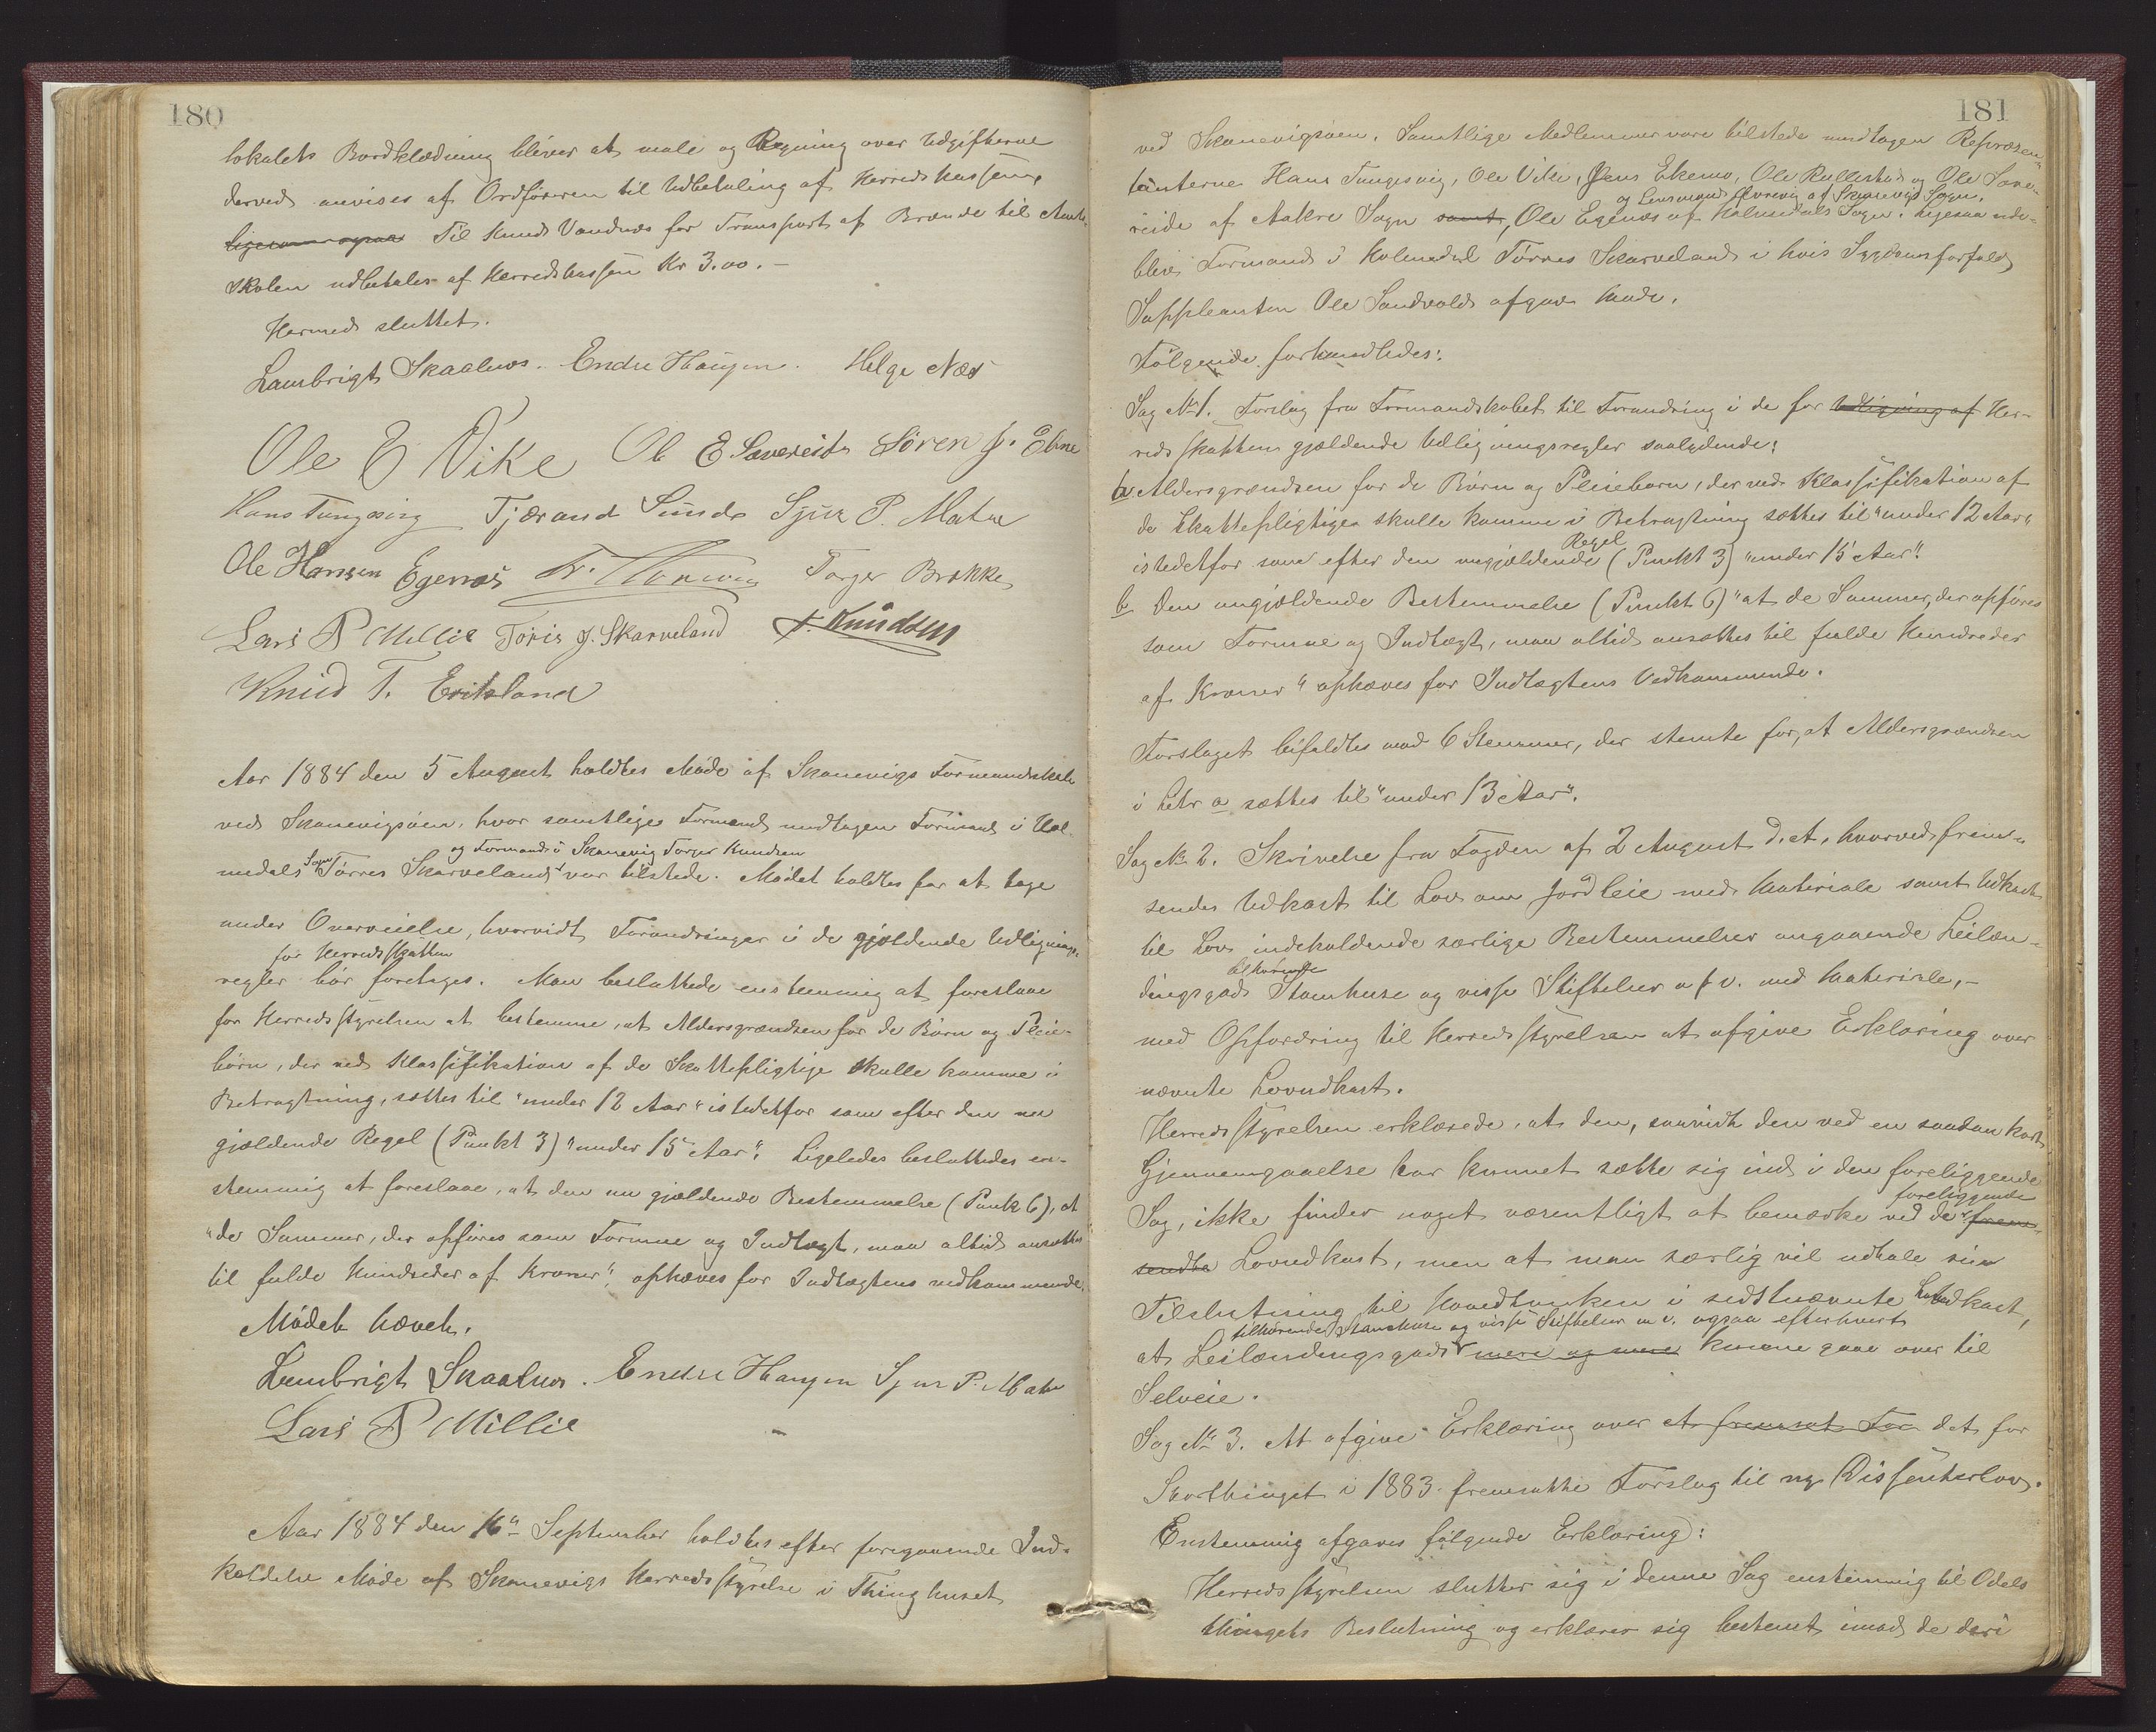 180
lokalets Bordklædning bliver at male og Regning over Udgifterne
derved anvises af Ordføreren til Udbetaling af Herredskassen,
ligesom ogsaa Til Knud Vandnæs for Transport af Brænde til Amts-
skolen udbetales af Herredskassen Kr 3.00.-
Hermed sluttet.
Lambrigt Skaalnes. Endre Haugen. Helge Næs
Ole E Vike Ole E Sævereide Sören J. Ebne
Hans Tungesvig Tjærand Sunde Sjur P. Matre
Ole Hansen Egenæs Torger Brekke
Lars P Millie Töris J. Skarveland T. Knudsen
Knud T. Eritsland
Aar 1884 den 5 August holdtes Møde af Skonevigs Formandskab
ved Skonevigsøen, hvor samtlige Formænd undtagen Formand i Hol-
og Formand i Skonevig Torger Knudsen
medals Sogn Tørres Skarveland var tilstede. Mødet holdtes for at tage
under Overveielse, hvorvidt Forandringer i de gjældende Udlignings-
for Herredsskatten
regler bør foretages. Man besluttede enstemmig at foreslaae
for Herredsstyrelsen at bestemme, at Aldersgrændsen for de Børn og Pleie-
børn, der ved Klassifikation af de Skattepligtige skulle komme i
Betragtning, sættes til "under 12 Aar" istedetfor som efter den nu
gjældende Regel (Punkt 3) "under 15 Aar". Ligeledes besluttedes en-
stemmig at foreslaae, at den nu gjældende Bestemmelse (Punk 6), at
"de Summer, der opføres som Formue og Indtægt, maa altid ansættes
til fulde Hundreder af Kroner", ophæves for Indtægtens vedkommende.
Mødet hævet.
Lambrigt Skaalnes. Endre Haugen Sjur P. Matre
Lars P Millie
Aar 1884 den 16de September holdtes efter foregaaende Ind-
kaldelse Møde af Skonevigs Herredsstyrelse i Thinghuset
181
ved Skonevigsøen. Samtlige Medlemmer vare tilstede undtagen Repræsen-
tanterne Hans Tungesvig, Ole Vike, Jens Ekemo, Ole Rullestad og Ole Sæve-
og Lensmand Hvrevig af Skonevigs Sogn.
reide af Aakre Sogn samt, Ole Egenæs af Holmedals Sogn. Ligesaa ude-
blev Formand i Holmedal Tørres Skarveland i hvis Sygdomsforfald
Suppleanten Ole Sandvold afgav Møde.
Følgende forhandledes:
Sag No 1. Forslag fra Formandskabet til Forandring i de for Udligning af Her-
redsskatten gjældende Udligningsregler saalydende:
a. Aldersgrændsen for de Børn og Pleiebørn, der ved Klassifikation af
de Skattepligtige skulle komme i Betragtning sættes til "under 12 Aar"
Regel
istedetfor som efter den nugjældende (Punkt 3) "under 15 Aar".
b Den nugjældende Bestemmelse (Punkt 6) "at de Summer, der opføres
som Formue og Indtægt, maa altid ansættes til fulde Hundreder
af Kroner" ophæves for Indtægtens Vedkommende.
Forslaget bifaldtes mod 6 Stemmer, der stemte for, at Aldersgrændsen
i Letr a sættes til "under 13 Aar".
Sag No 2. Skrivelse fra Fogden af 2 August d. A., hvorved frem-
sendes Udkast til Lov om Jordleie med Materiale samt Udkast
til Lov indeholdende særlige Bestemmelser angaaende Leilæn-
tilhørende
dingsgods Stamhuse og visse Stiftelser o s v. med Materiale,-
med Opfordring til Herredsstyrelsen at afgive Erklæring over
nævnte Lovudkast.
Herredsstyrelsen erklærede, at den, saavidt den ved en saadan kort
Gjennemgaaelse har kunnet sætte sig ind i den foreliggende
foreliggende
Sag, ikke finder noget væsentligt at bemærke ved de frem-
sendte Lovudkast, men at man særlig vil udtale sin
Tilslutning til Hovedtanken i sidstnævnte Lovudkast,
tilhørende Stamhuse og visse Stiftelser m v. ogsaa efterhvert
at Leilændingsgods mere og mere kunne gaae over til
Selveie.
Sag No 3. At afgive Erklæring over et fremsat For det for
Storthinget i 1883 fremsatte Forslag til ny Dissenterlov.
Enstemmig afgaves følgende Erklæring:
Herredsstyrelsen slutter sig i denne Sag enstemmig til Odels
thingets Beslutning og erklærer sig bestemt imod de deri